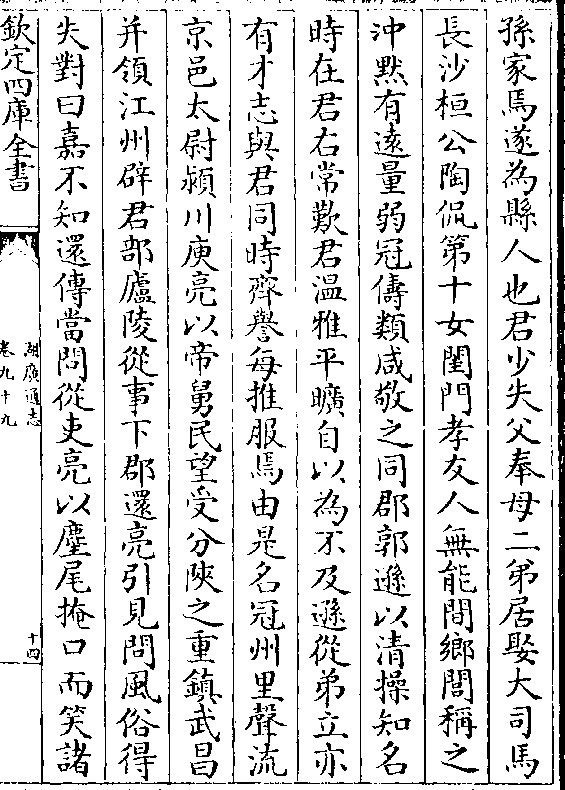 孫家焉遂為縣人也君少失父奉母二弟居娶大司馬
長沙桓公陶侃第十女閨門孝友人無能間鄉閭稱之
沖黙有遠量弱冠儔類咸敬之同郡郭遜以清操知名
時在君右常歎君温雅平曠自以為不及遜從弟立亦
有才志與君同時齊譽每推服焉由是名冠州里聲流
京邑太尉潁川庾亮以帝舅民望受分陜之重鎮武昌
并領江州辟君部廬陵從事下郡還亮引見問風俗得
失對曰嘉不知還傳當問從吏亮以麈尾掩口而笑諸
欽定四庫全書
湖廣通志
卷九十九
十四